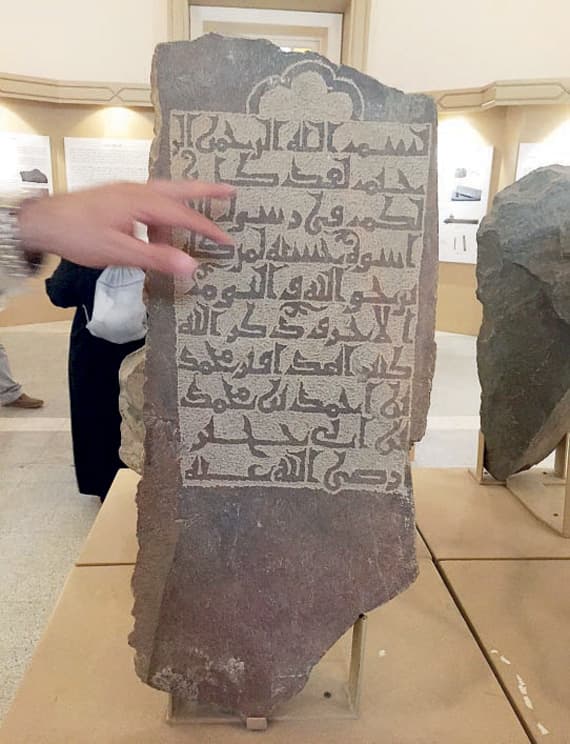 بسم الله الرحمن الر
حيم لقد كان
لكم في رسول الله
اسوة حسنة لمن كان
يرجو الله واليوم
الاخر وذكر الله
كثيرا محمد
بن احمد بن محمد
بن ابي
رضي الله عنه